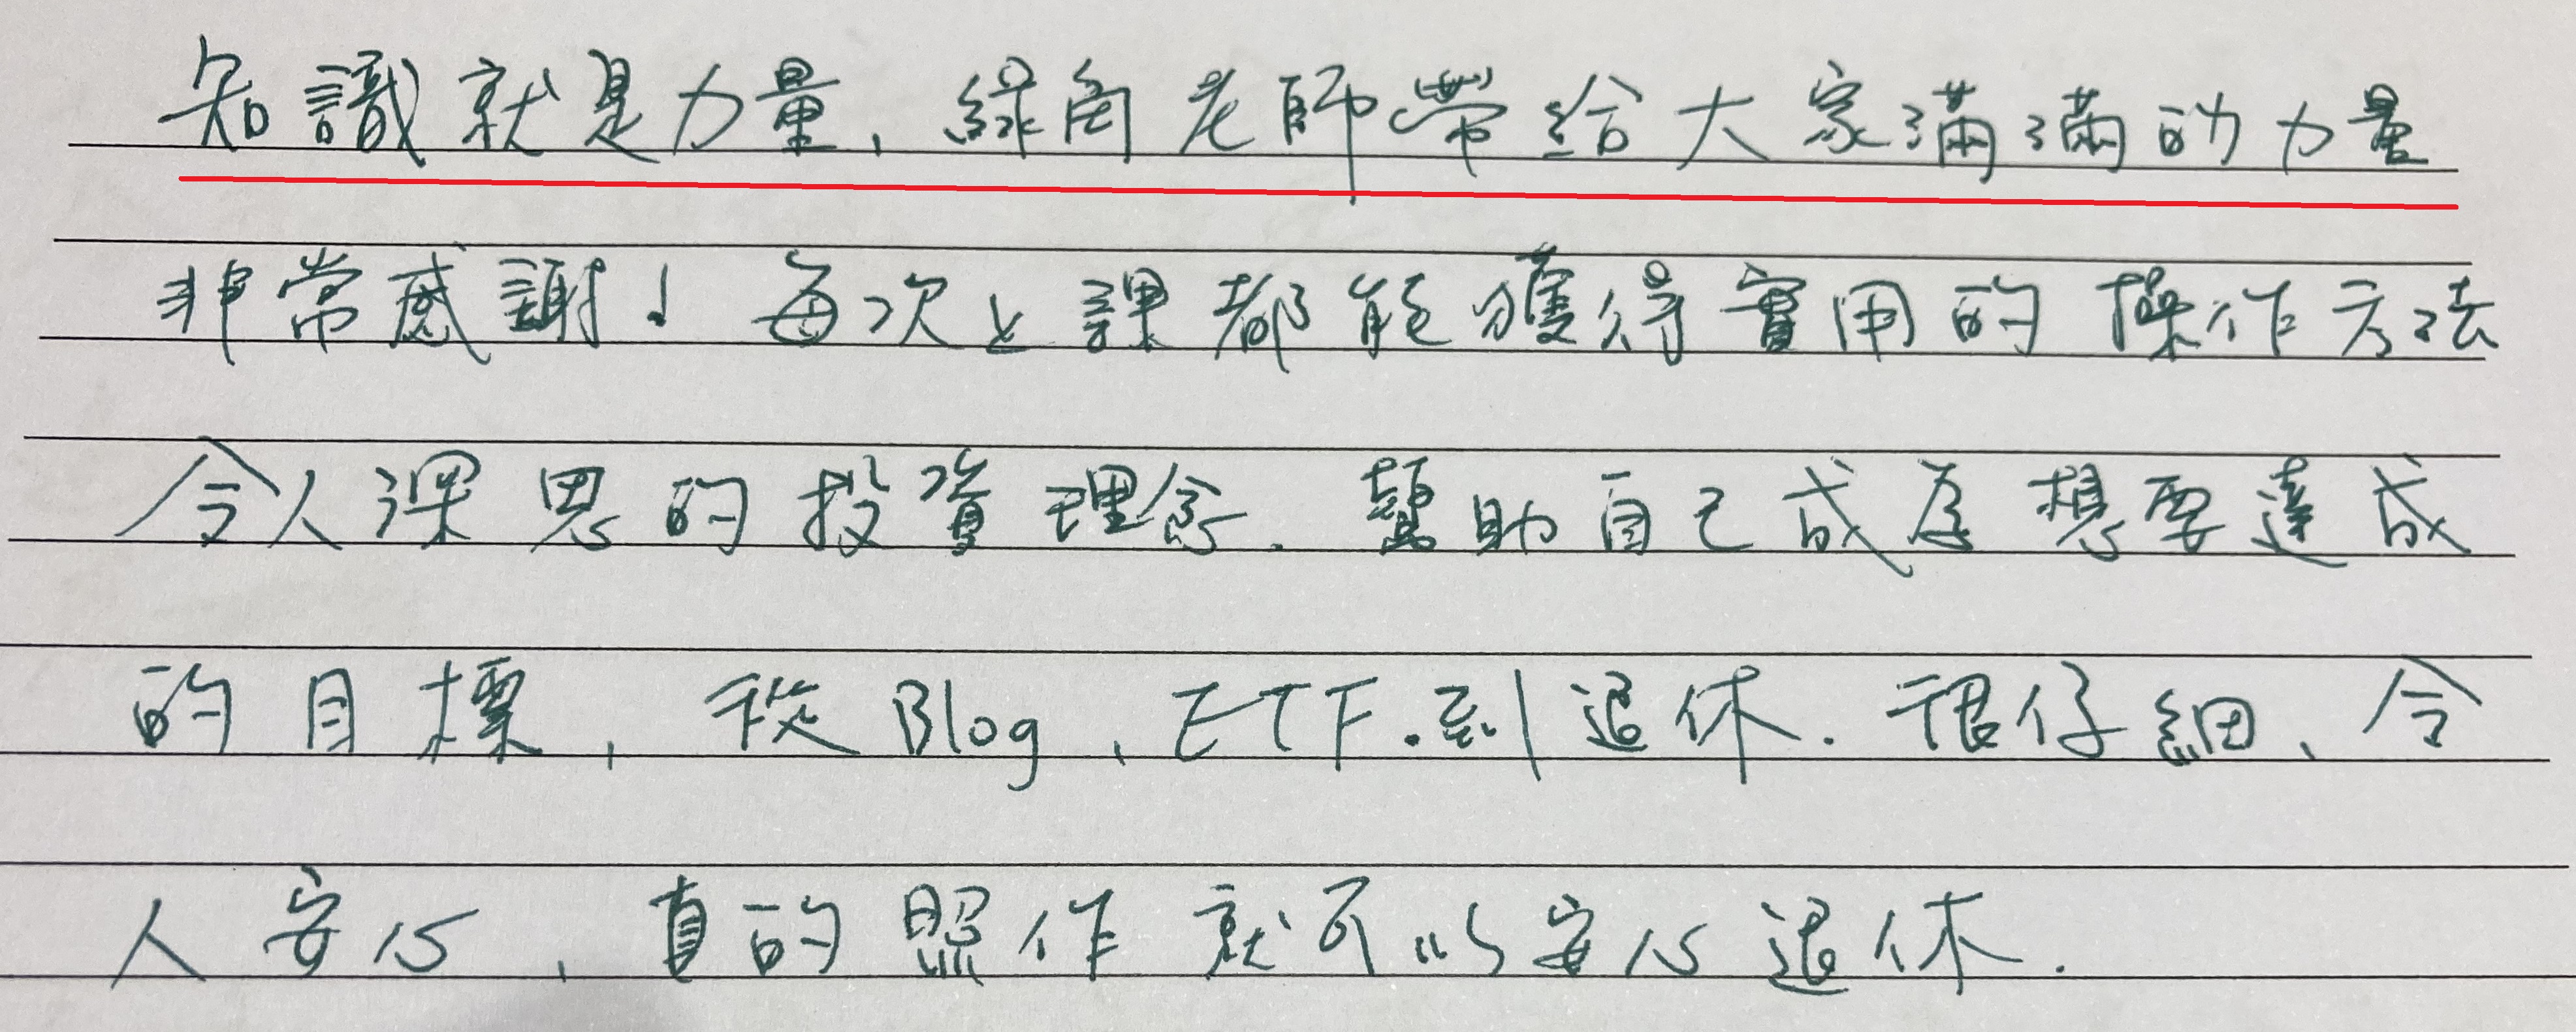 知識就是力量，綠角老師帶給大家滿滿的力量
非常感謝！每次上課都能獲得實用的操作方法
令人深思的投資理念．幫助自己成為想要達成
的目標，從Blog、ETF．到退休．很仔細、令
人安心，真的照作就可以安心退休．